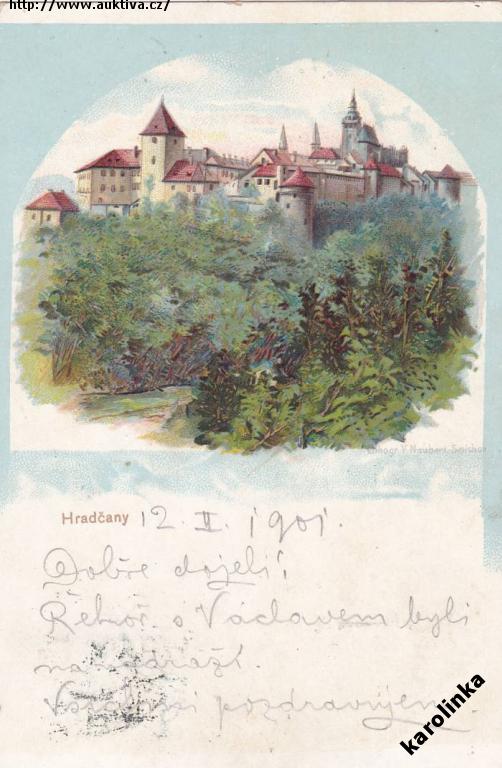 http://www.auktiva.cz/
Lithogr. V. Neubert, Smíchov
Hradčany 12. II. 1901.
Dobře dojeli,
Řehoř s Václavem byli
na nádraží.
pozdravujem
karolinka